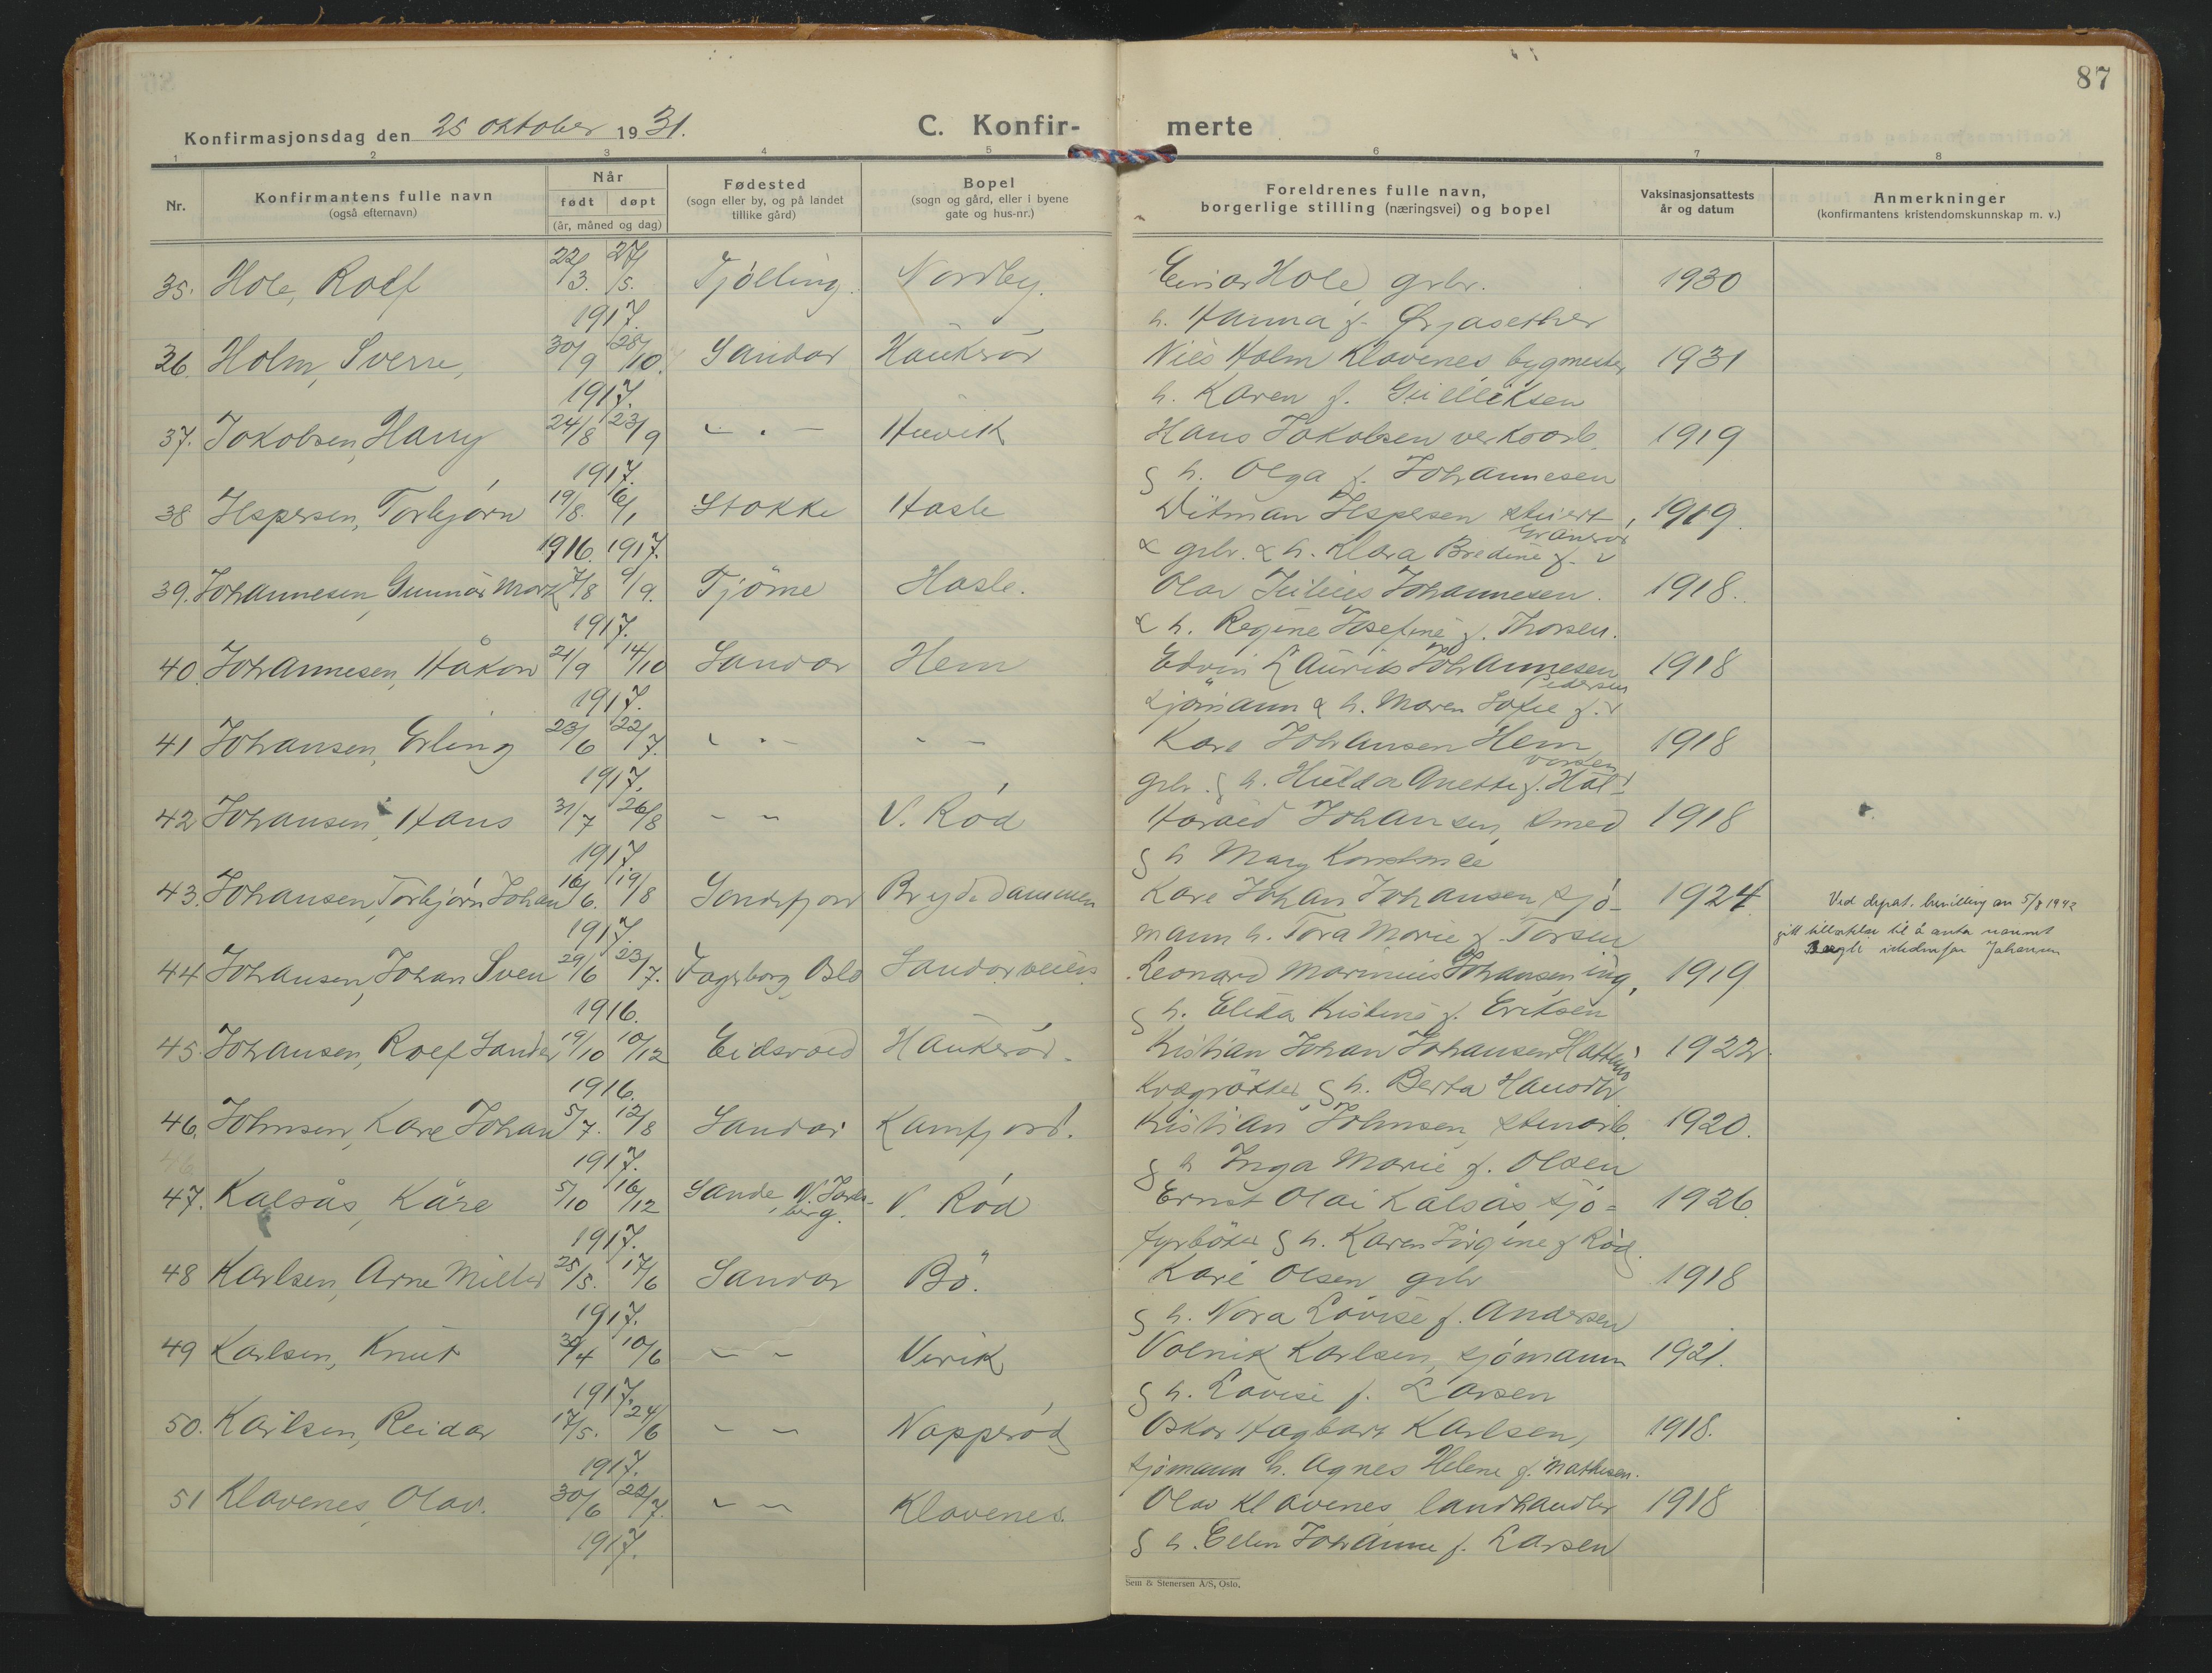 87
Konfirmasjonsdag den 25 oktober 1931.
C. Konfir- merte
1 2 3 4 5 6 7 8
Nr.
Konfirmantens fulle navn
(også efternavn)
Når
født døpt
(år, måned og dag)
Fødested
(sogn eller by, og på landet
tillike gård)
Bopel
(sogn og gård, eller i byene
gate og hus-nr.)
Foreldrenes fulle navn,
borgerlige stilling (næringsvei) og bopel
Vaksinasjonsattests
år og datum
Anmerkninger
(konfirmantens kristendomskunnskap m. v.)
35. Hole, Rolf 22/3. 27/5. Tjölling. Nordby. Einar Hole grbr. 1930
1917. h. Hanna f. Ørjasether
36. Holm, Sverre, 30/9 28/10. Sandar Haukerör Nils Holm Klavenes bygmester 1931
1917. h. Karen f. Gulliksen
37. Jakobsen, Harry 24/8 23/9 - . - Huvik Hans Jakobsen verksarb. 1919
1917. & h. Olga f. Johannesen
38 Jespersen, Torbjørn 19/8. 6/1 Stokke Hasle Ditman Jespersen stuert, 1919.
1916. 1917. & grbr. & h. Klara Bredine f.
39. Johannesen, Gunnar Mark 7/8 9/9. Tjöme Hasle. Olav Julius Johannesen. 1918.
1917. & h. Regine Josefine f. Thorsen.
40. Johannesen, Håkon 21/9 14/10 Sandar Hem Edvin Laurits Johannesen 1918
1917. sjömann & h. Maren Sofie f. Pedersen
41 Johansen, Erling 23/6 22/7. - . - - - Karl Johansen Hem, 1918
1917. grbr. & h. Hulda Anette f. Halvorsen
42 Johansen, Hans 31/7 26/8 - - V. Rød Harald Johansen, smed 1918
1917. & h Mary Konstance
43. Johansen, Torbjørn Johan 16/6. 19/8 Sandefjord Brydedammen Karl Johan Johansen sjö- 1924
1917. mann h. Tora Marie f. Torsen
Ved depat. bevilling av 5/8 1942
gitt tillatelse til å anta navnet
istedenfor Johansen
44 Johansen, Johan Sven 29/6 23/7. Fagerborg, Oslo Sandarveien Leonard Marinius Johansen ing, 1919
1916. & h. Elida Kristine f. Eriksen
45. Johansen, Rolf Sander 19/10 10/12 Eidsvold Haukeröd. Kristian Johan Johansen 1922
1916. & h. Berta
46. Johnsen, Kare Johan 5/7. 12/8 Sandar Kamfjord. Kristian Johnsen, stenarb. 1920.
1917. & h Inga Marie f. Olsen
47. Kalsås, Kåre 5/10 16/12 Sande, N. Jarlsberg. V. Rød Ernst Olai Kalsås sjö- 1926.
1917. fyrböter & h. Karen Jörgine f Rød.
48 Karlsen, Arne Miller 25/5. 17/6 Sandar Bö. Karl Olsen grbr 1918
1917. & h. Nora Lovise f. Andersen
49 Karlsen, Knut 30/4 10/6 - - Virik Volrik Karlsen, sjömann 1921.
1917. & h. Lovise f. Larsen
50. Karlsen, Reidar 17/5. 24/6 - - Napperød Oskar Hagbart Karlsen, 1918.
1917. sjömann h. Agnes Helene f. Mathisen.
51 Klavenes, Olav. 30/6 22/7. - - Klavenes. Olav Klavenes landhandler 1918
1917. & h. Ellen Johanne f. Larsen
Sem & Stenersen A/S, Oslo.